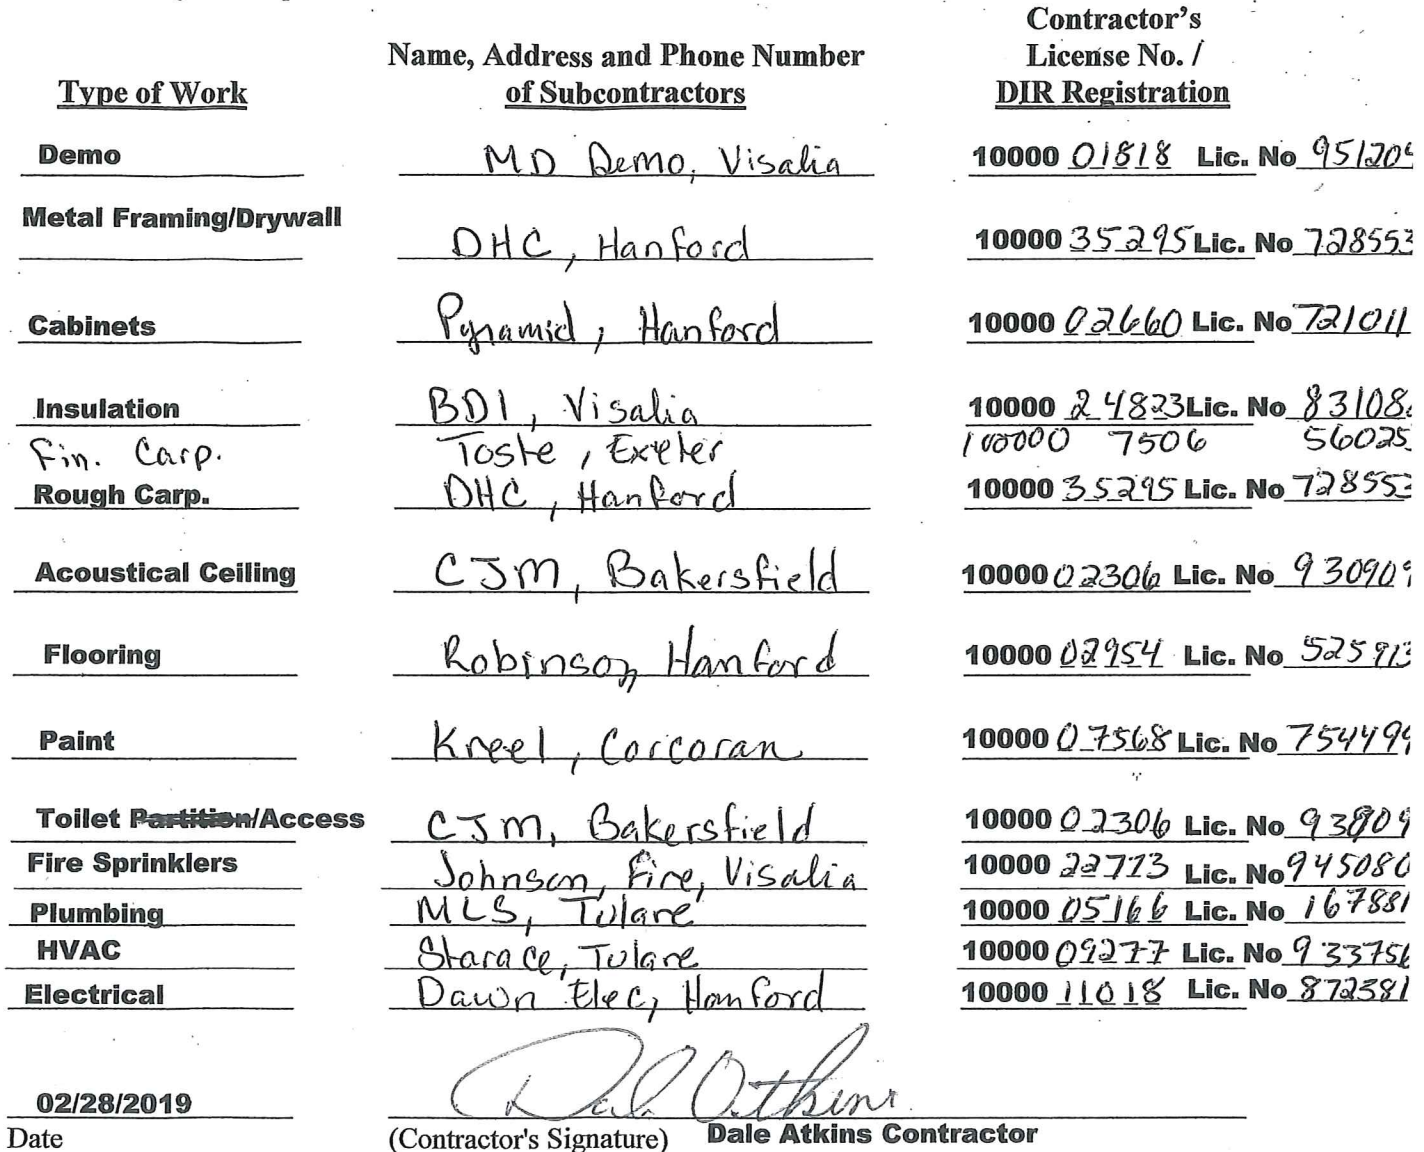 Contractor's
Name, Address and Phone Number License No. /
Type of Work of Subcontractors DIR Registration
Demo MD Demo, Visalia 10000 01818 Lic. No 951209
Metal Framing/Drywall
DHC, Hanford 10000 35295 Lic. No 728553
Cabinets Pyramid, Hanford 10000 02660 Lic. No 721011
Insulation BDI, Visalia 10000 24823 Lic. No 83108
Fin. Carp. Toste, Exeter 100000 7506 56025
Rough Carp. DHC, Hanford 10000 35295 Lic. No 728553
Acoustical Ceiling CJM, Bakersfield 10000 02306 Lic. No 930909
Flooring Robinson, Hanford 10000 02954 Lic. No 525913
Paint Kreel, Corcoran 10000 07568 Lic. No 754499
Toilet Partition/Access CJM, Bakersfield 10000 02306 Lic. No
Fire Sprinklers Johnson, Fire, Visalia 10000 22773 Lic. No 945080
Plumbing MLS, Tulare 10000 05166 Lic. No 167881
HVAC Starace, Tulare 10000 09277 Lic. No 933756
Electrical Dawn Elec, Hanford 10000 11018 Lic. No 872381
Dale Atkins
02/28/2019
Date (Contractor's Signature) Dale Atkins Contractor